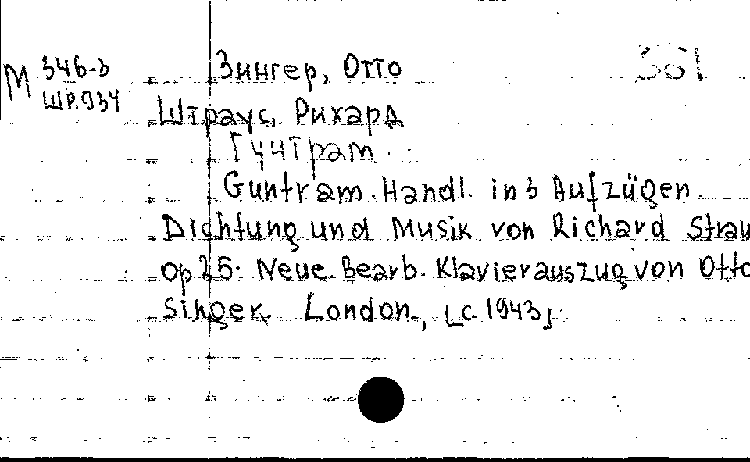 М 346-3 Зингер, Отто 361
ШР.934 Штраус, Рихард
Гунтрам.
Guntram. Handl. in 3 Aufzügen.
Dichtung und Musik von Richard Strau
op 25. Neue Bearb. Klavierauszug von Otto
Singer. London, [c 1943]